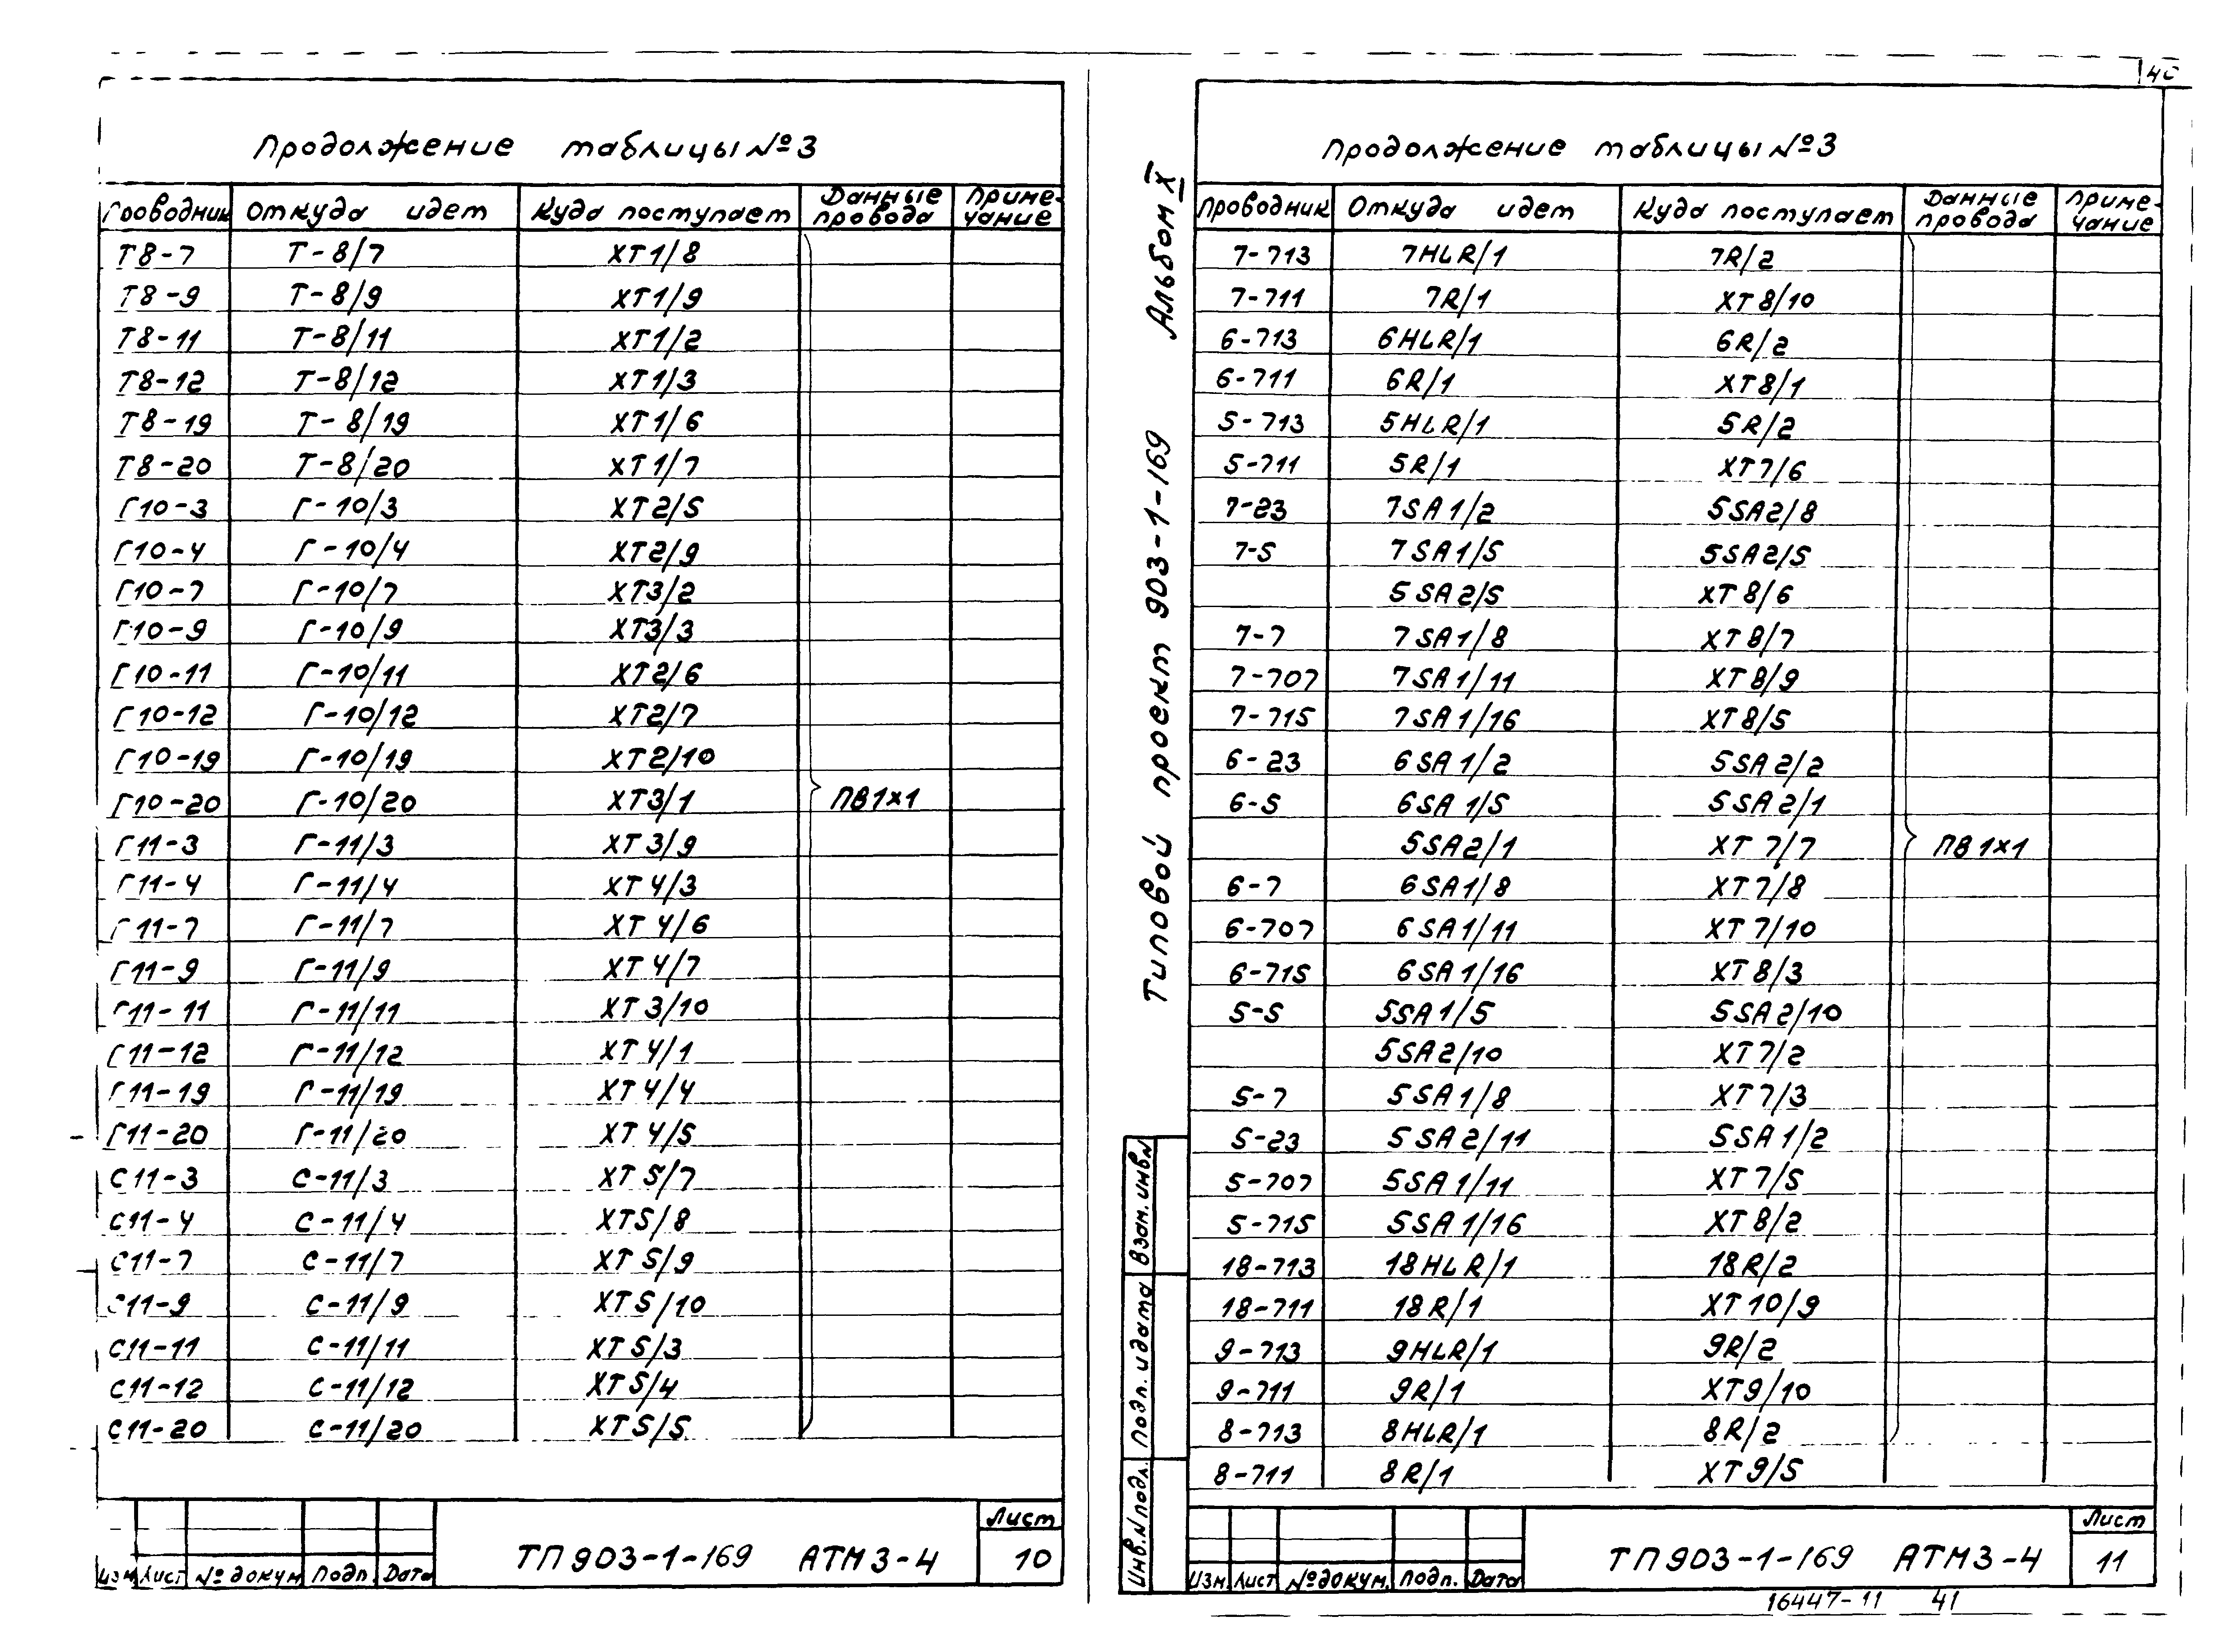 Продолжение таблицы №3
Проводник Откуда идет Куда поступает Данные провода Приме-чание
Т8-7 Т-8/7 ХТ1/8
Т8-9 Т-8/9 ХТ1/9
Т8-11 Т-8/11 ХТ1/2
Т8-12 Т-8/12 ХТ1/3
Т8-19 Т-8/19 ХТ1/6
Т8-20 Т-8/20 ХТ1/7
Г10-3 Г-10/3 ХТ2/5
Г10-4 Г-10/4 ХТ2/9
Г10-7 Г-10/7 ХТ3/2
Г10-9 Г-10/9 ХТ3/3
Г10-11 Г-10/11 ХТ2/6
Г10-12 Г-10/12 ХТ2/7
Г10-19 Г-10/19 ХТ2/10
Г10-20 Г-10/20 ХТ3/1 ПВ1х1
Г11-3 Г-11/3 ХТ3/9
Г11-4 Г-11/4 ХТ4/3
Г11-7 Г-11/7 ХТ4/6
Г11-9 Г-11/9 ХТ4/7
Г11-11 Г-11/11 ХТ3/10
Г11-12 Г-11/12 ХТ4/1
Г11-19 Г-11/19 ХТ4/4
Г11-20 Г-11/20 ХТ4/5
С11-3 С-11/3 ХТ5/7
С11-4 С-11/4 ХТ5/8
С11-7 С-11/7 ХТ5/9
С11-9 С-11/9 ХТ5/10
С11-11 С-11/11 ХТ5/3
С11-12 С-11/12 ХТ5/4
С11-20 С-11/20 ХТ5/5
Изм Лист № докум Подп. Дата
ТП903-1-169 АТМ3-4
Лист
10
Альбом X
Типовой проект 903-1-169
Взам. инв №
Подп. и дата
Инв. № подл.
Продолжение таблицы №3
Проводник Откуда идет Куда поступает Данные провода Приме-чание
7-713 7HLR/1 7R/2
7-711 7R/1 ХТ8/10
6-713 6HLR/1 6R/2
6-711 6R/1 ХТ8/1
5-713 5HLR/1 5R/2
5-711 5R/1 ХТ7/6
7-23 7SA1/2 5SA2/8
7-5 7SA1/5 5SA2/5
5SA2/5 ХТ8/6
7-7 7SA1/8 ХТ8/7
7-707 7SA1/11 ХТ8/9
7-715 7SA1/16 ХТ8/5
6-23 6SA1/2 5SA2/2
6-5 6SA1/5 5SA2/1
5SA2/1 ХТ7/7 ПВ1х1
6-7 6SA1/8 ХТ7/8
6-707 6SA1/11 ХТ7/10
6-715 6SA1/16 ХТ8/3
5-5 5SA1/5 5SA2/10
5SA2/10 ХТ7/2
5-7 5SA1/8 ХТ7/3
5-23 5SA2/11 5SA1/2
5-707 5SA1/11 ХТ7/5
5-715 5SA1/16 ХТ8/2
18-713 18HLR/1 18R/2
18-711 18R/1 ХТ10/9
9-713 9HLR/1 9R/2
9-711 9R/1 ХТ9/10
8-713 8HLR/1 8R/2
8-711 8R/1 ХТ9/5
Изм Лист № докум. Подп. Дата
ТП903-1-169 АТМ3-4
Лист
11
16447-11 41